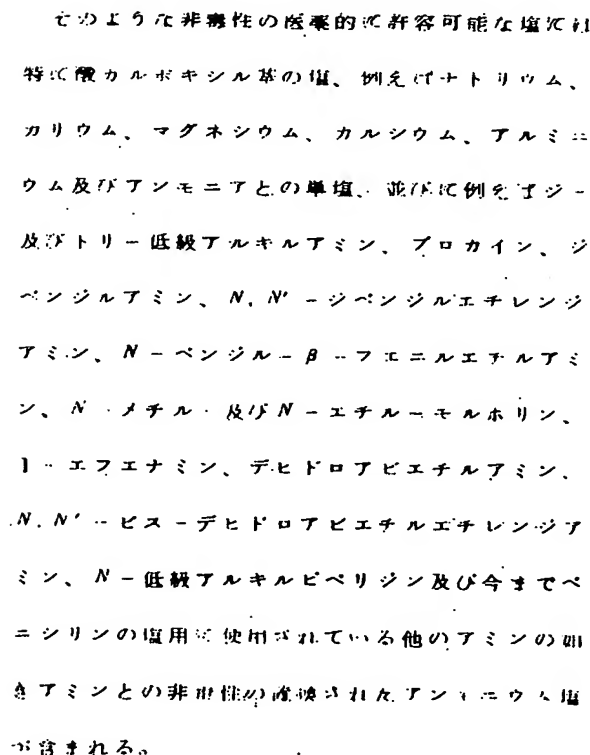 そのような非毒性の医薬的に許容可能な塩には
特に酸カルボキシル基の塩、例えばナトリウム、
カリウム、マグネシウム、カルシウム、アルミニ
ウム及びアンモニアとの単塩、並びに例えばジー
及びトリー低級アルキルアミン、プロカイン、ジ
ベンジルアミン、N,N'-ジベンジルエチレンジ
アミン、N-ベンジル-β-フエニルエチルアミ
ン、N-メチル-及びN-エチル-モルホリン、
1-エフエナミン、デヒドロアビエチルアミン、
N,N'-ビス-デヒドロアビエチルエチレンジア
ミン、N-低級アルキルピペリジン及び今までペ
ニシリンの塩用に使用されている他のアミンの如
きアミンとの非毒性の置換されたアンモニウム塩
が含まれる。